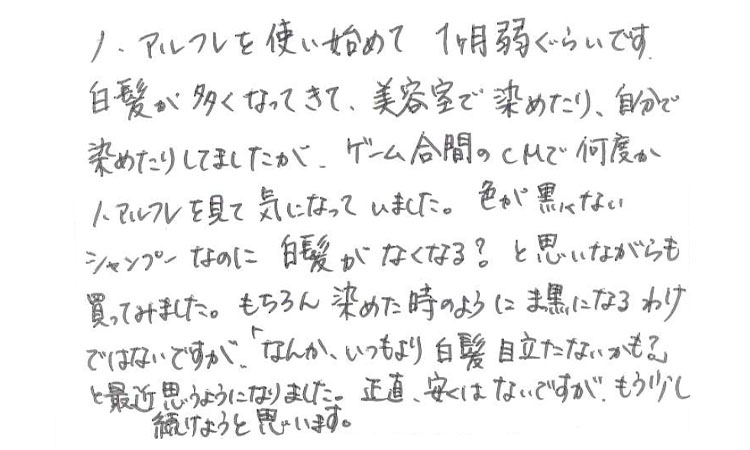 ハ・アルフレを使い始めて 1ヶ月弱ぐらいです.
白髪が多くなってきて、美容室で染めたり、自分で
染めたりしてましたが、ゲーム合間のCMで何度か
ハ・アルフレを見て気になっていました。色が黒くない
シャンプーなのに 白髪がなくなる?と思いながらも
買ってみました。もちろん染めた時のようにま黒になるわけ
ではないですが、「なんか、いつもより白髪目立たないかも?」
と最近思うようになりました。正直、安くはないですが、もう少し
続けようと思います。